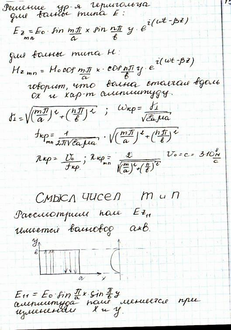 Решение ур-я Гермгольца
для волны типа E:
E_z mn = E₀ · sin mπ/a x · sin nπ/b y · e^i(ωt-βz)
для волны типа H:
H_z mn = H₀ cos mπ/a x · cos nπ/b y e^i(ωt-βz)
говорит, что волна вдоль
ox и хар-т амплитуду.
γ₁ = √((mπ/a)² + (nπ/b)²) ; ω кр = γ₁/√εaμa
f кр = 1/2π√εaμa · √((mπ/a)² + (nπ/b)²)
λ кр = v₀/f кр ; λ кр mn = 2/√((m/a)² + (n/b)²) v₀ = c = 3·10⁸ м/с
СМЫСЛ ЧИСЕЛ m и n
Рассмотрим поле E z₁₁
имеется волновод a×b.
y
b
a x
E₁₁ = E₀ · sin π/a x · sin π/b y
амплитуда поля меняется при
изменении x и y.